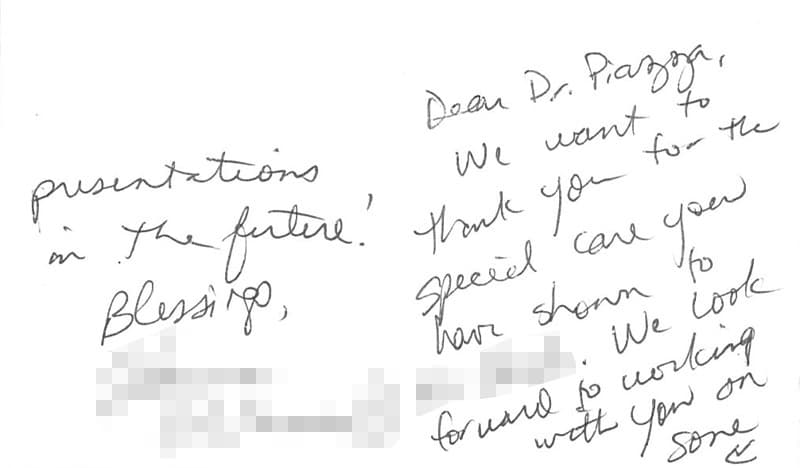 Dear Dr. Piazza,
We want to
thank you for the
special care you
have shown to
. We look
forward to working
with you on
some
presentations
in the future!
Blessings,